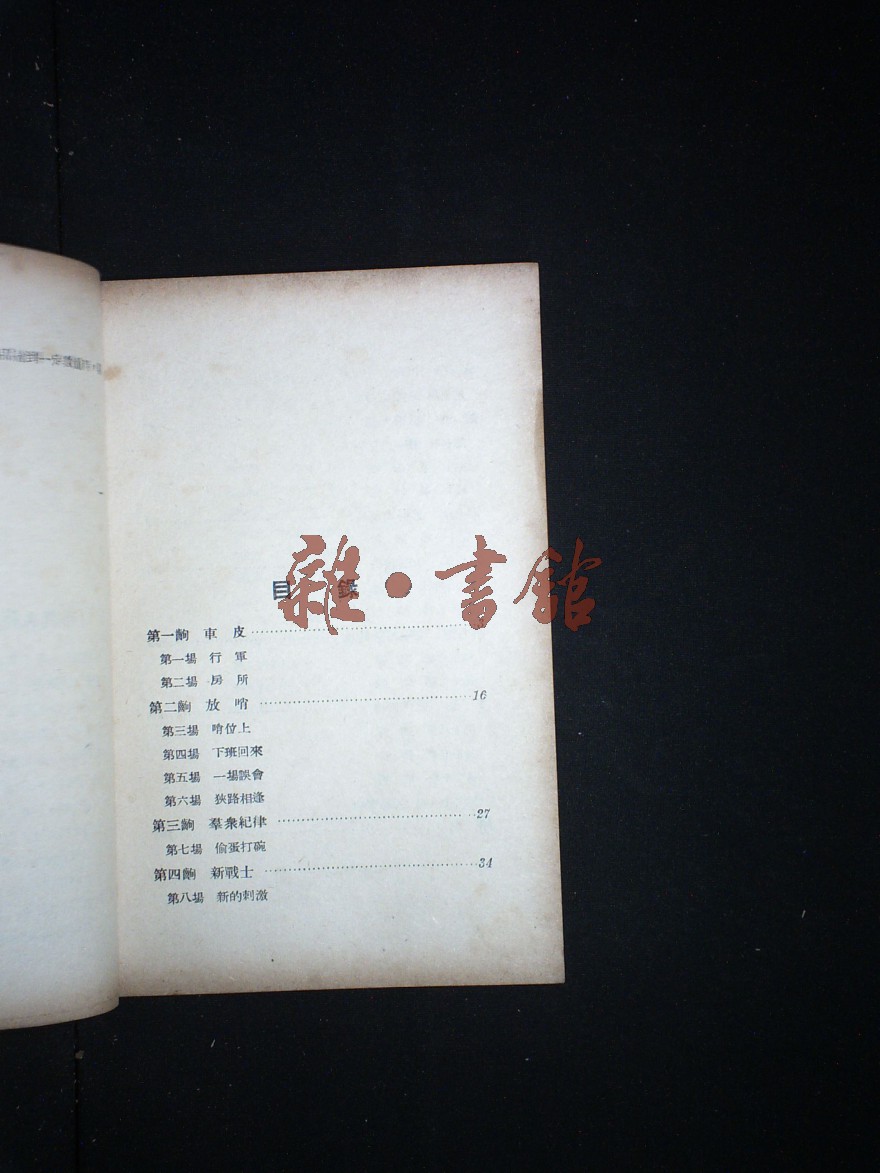 目錄
雜·書館
第一齣 車皮
第一場 行軍
第二場 房所
第二齣 放哨 16
第三場 哨位上
第四場 下班回來
第五場 一場誤會
第六場 狹路相逢
第三齣 羣衆紀律 27
第七場 偷蛋打碗
第四齣 新戰士 34
第八場 新的刺激